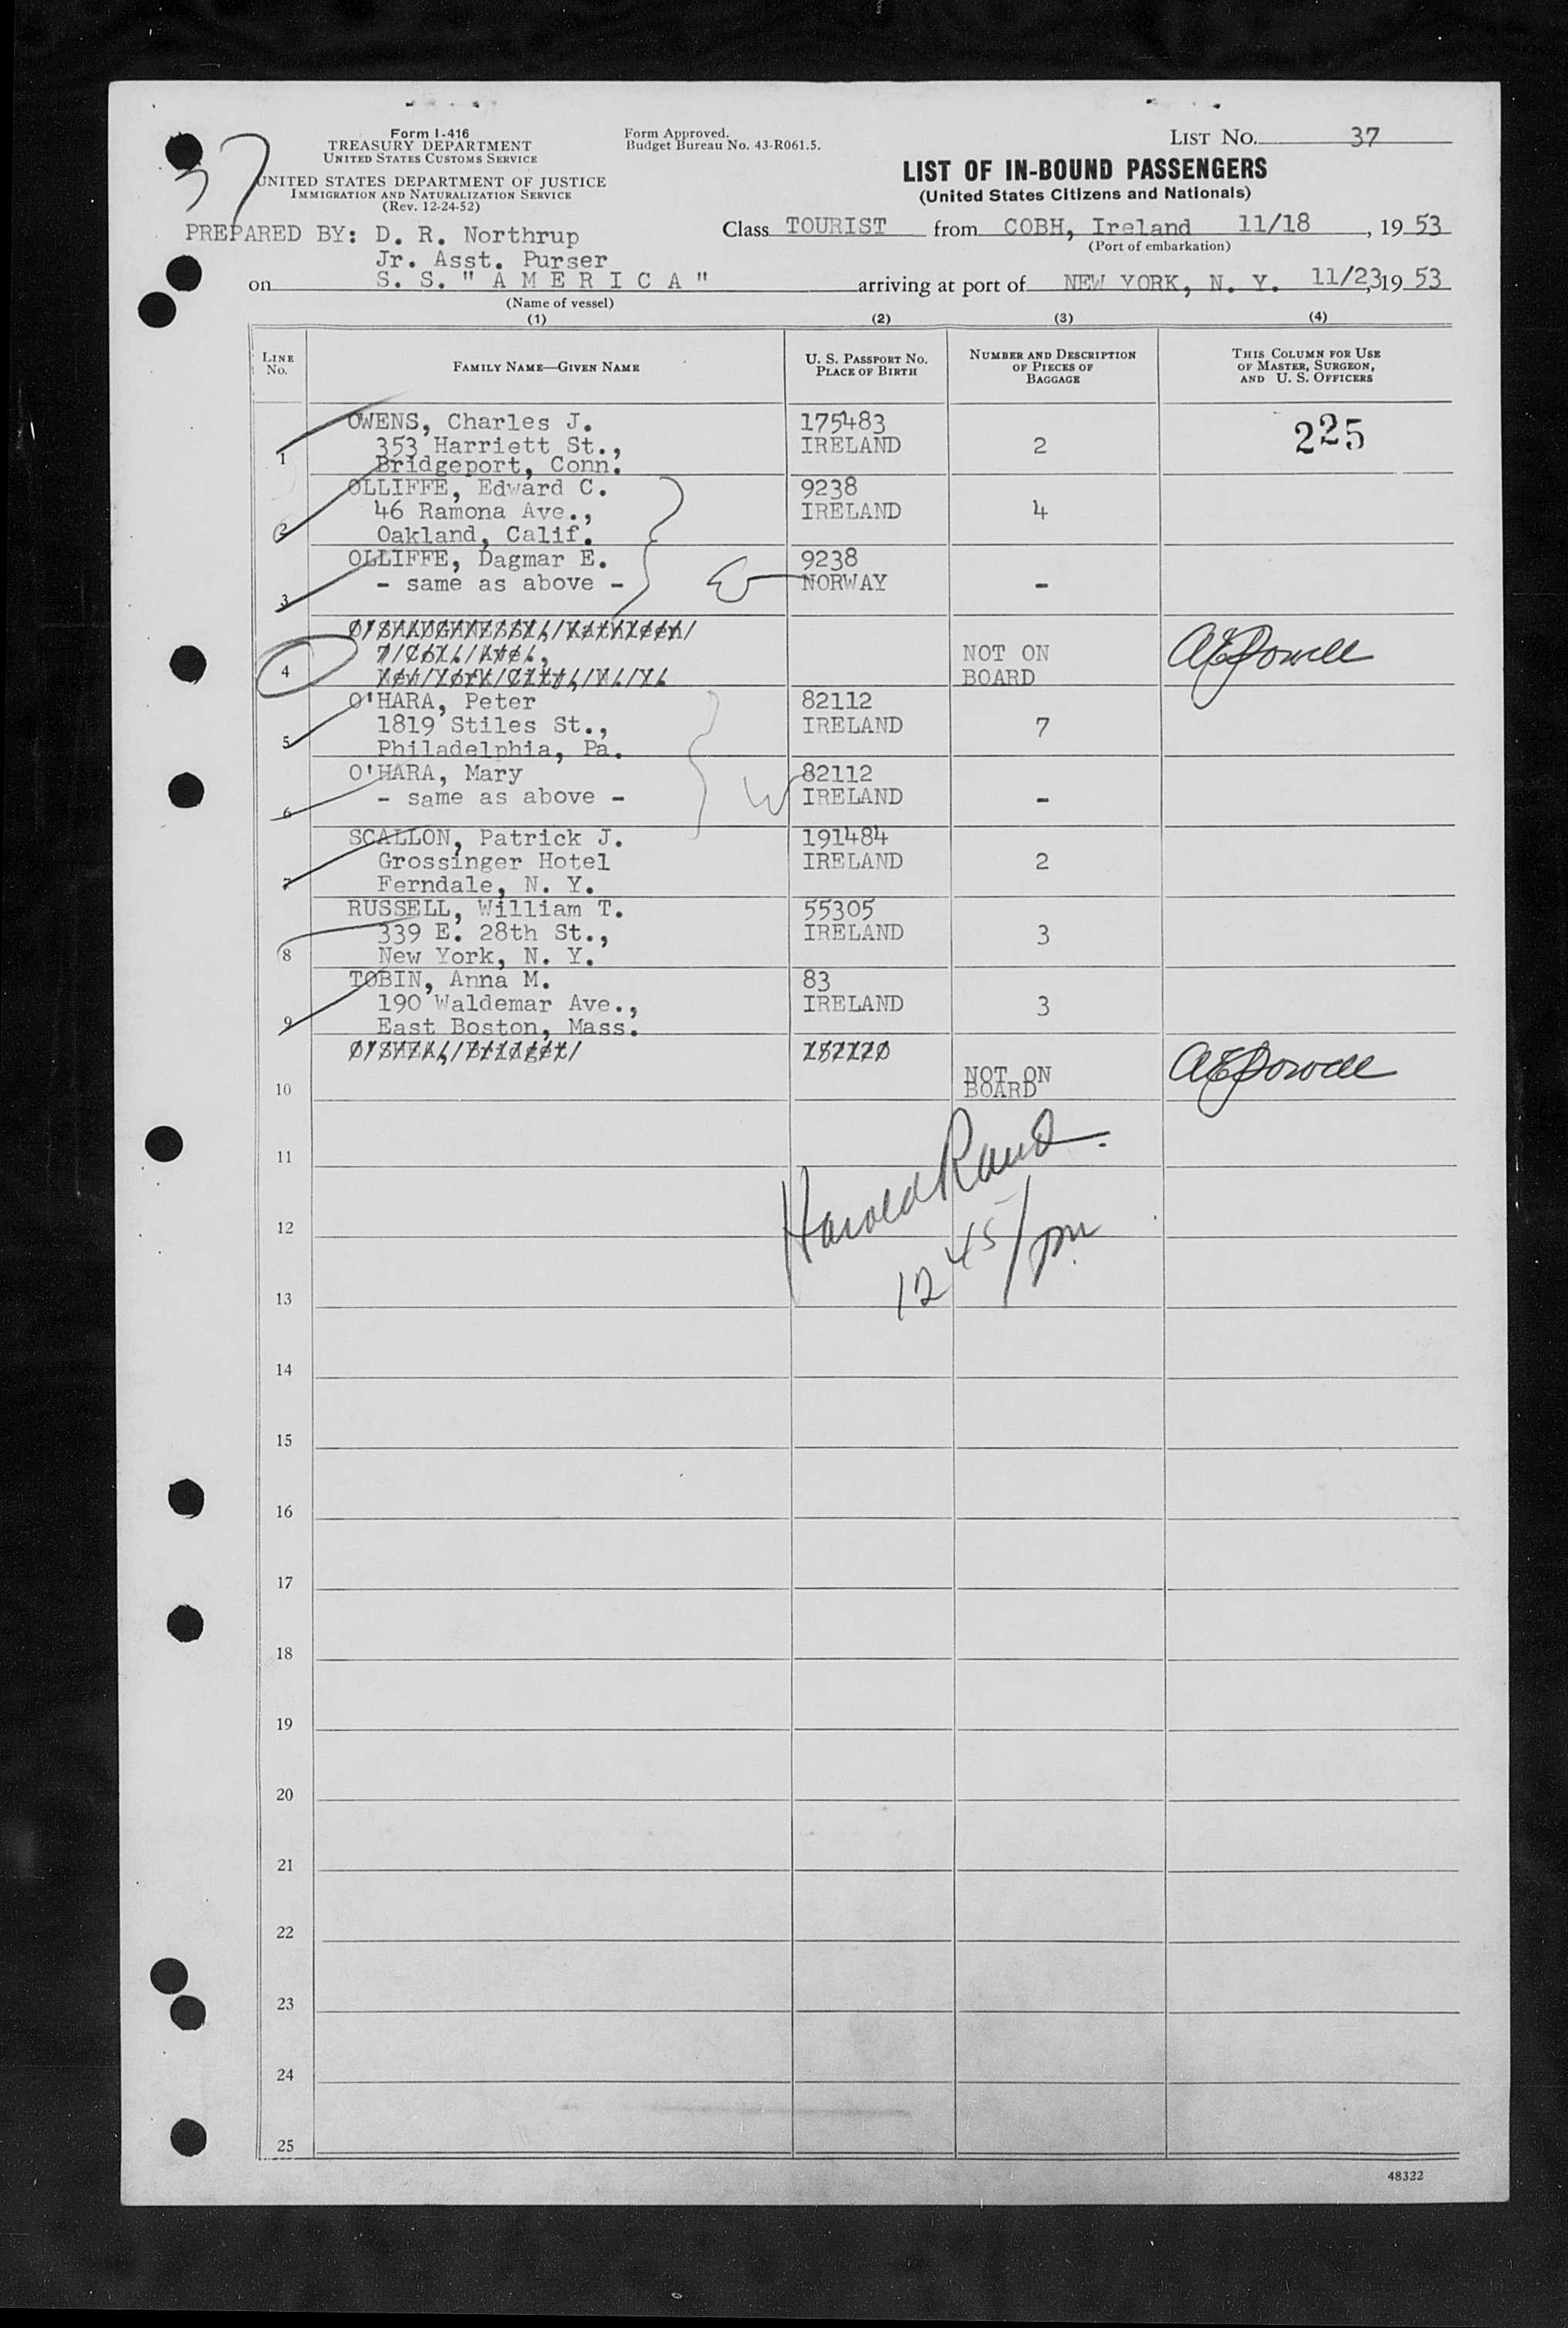 37
Form I-416
TREASURY DEPARTMENT
UNITED STATES CUSTOMS SERVICE
UNITED STATES DEPARTMENT OF JUSTICE
IMMIGRATION AND NATURALIZATION SERVICE
(Rev. 12-24-52)
Form Approved.
Budget Bureau No. 43-R061.5.
LIST NO. 37
LIST OF IN-BOUND PASSENGERS
(United States Citizens and Nationals)
PREPARED BY: D. R. Northrup
Jr. Asst. Purser
Class TOURIST from COBH, Ireland 11/18, 19 53
(Port of embarkation)
on S. S. "A M E R I C A" arriving at port of NEW YORK, N. Y. 11/23, 19 53
(Name of vessel)
(1) (2) (3) (4)
LINE NO.
FAMILY NAME—GIVEN NAME
U. S. PASSPORT NO.
PLACE OF BIRTH
NUMBER AND DESCRIPTION
OF PIECES OF
BAGGAGE
THIS COLUMN FOR USE
OF MASTER, SURGEON,
AND U. S. OFFICERS
OWENS, Charles J. 175483 225
1 353 Harriett St., IRELAND 2
Bridgeport, Conn.
OLLIFFE, Edward C. 9238
2 46 Ramona Ave., IRELAND 4
Oakland, Calif.
OLLIFFE, Dagmar E. 9238
3 - same as above - NORWAY -
O'SHAUGHNESSY, Kathleen
4 NOT ON
BOARD
New York City, N. Y.
O'HARA, Peter 82112
5 1819 Stiles St., IRELAND 7
Philadelphia, Pa.
O'HARA, Mary 82112
6 - same as above - IRELAND -
W
SCALLON, Patrick J. 191484
7 Grossinger Hotel IRELAND 2
Ferndale, N. Y.
RUSSELL, William T. 55305
8 339 E. 28th St., IRELAND 3
New York, N. Y.
TOBIN, Anna M. 83
9 190 Waldemar Ave., IRELAND 3
East Boston, Mass.
O'SHEA, Bridget
10 NOT ON
BOARD
11
Harold Rand.
12
12 45/pm
13
14
15
16
17
18
19
20
21
22
23
24
25
48322